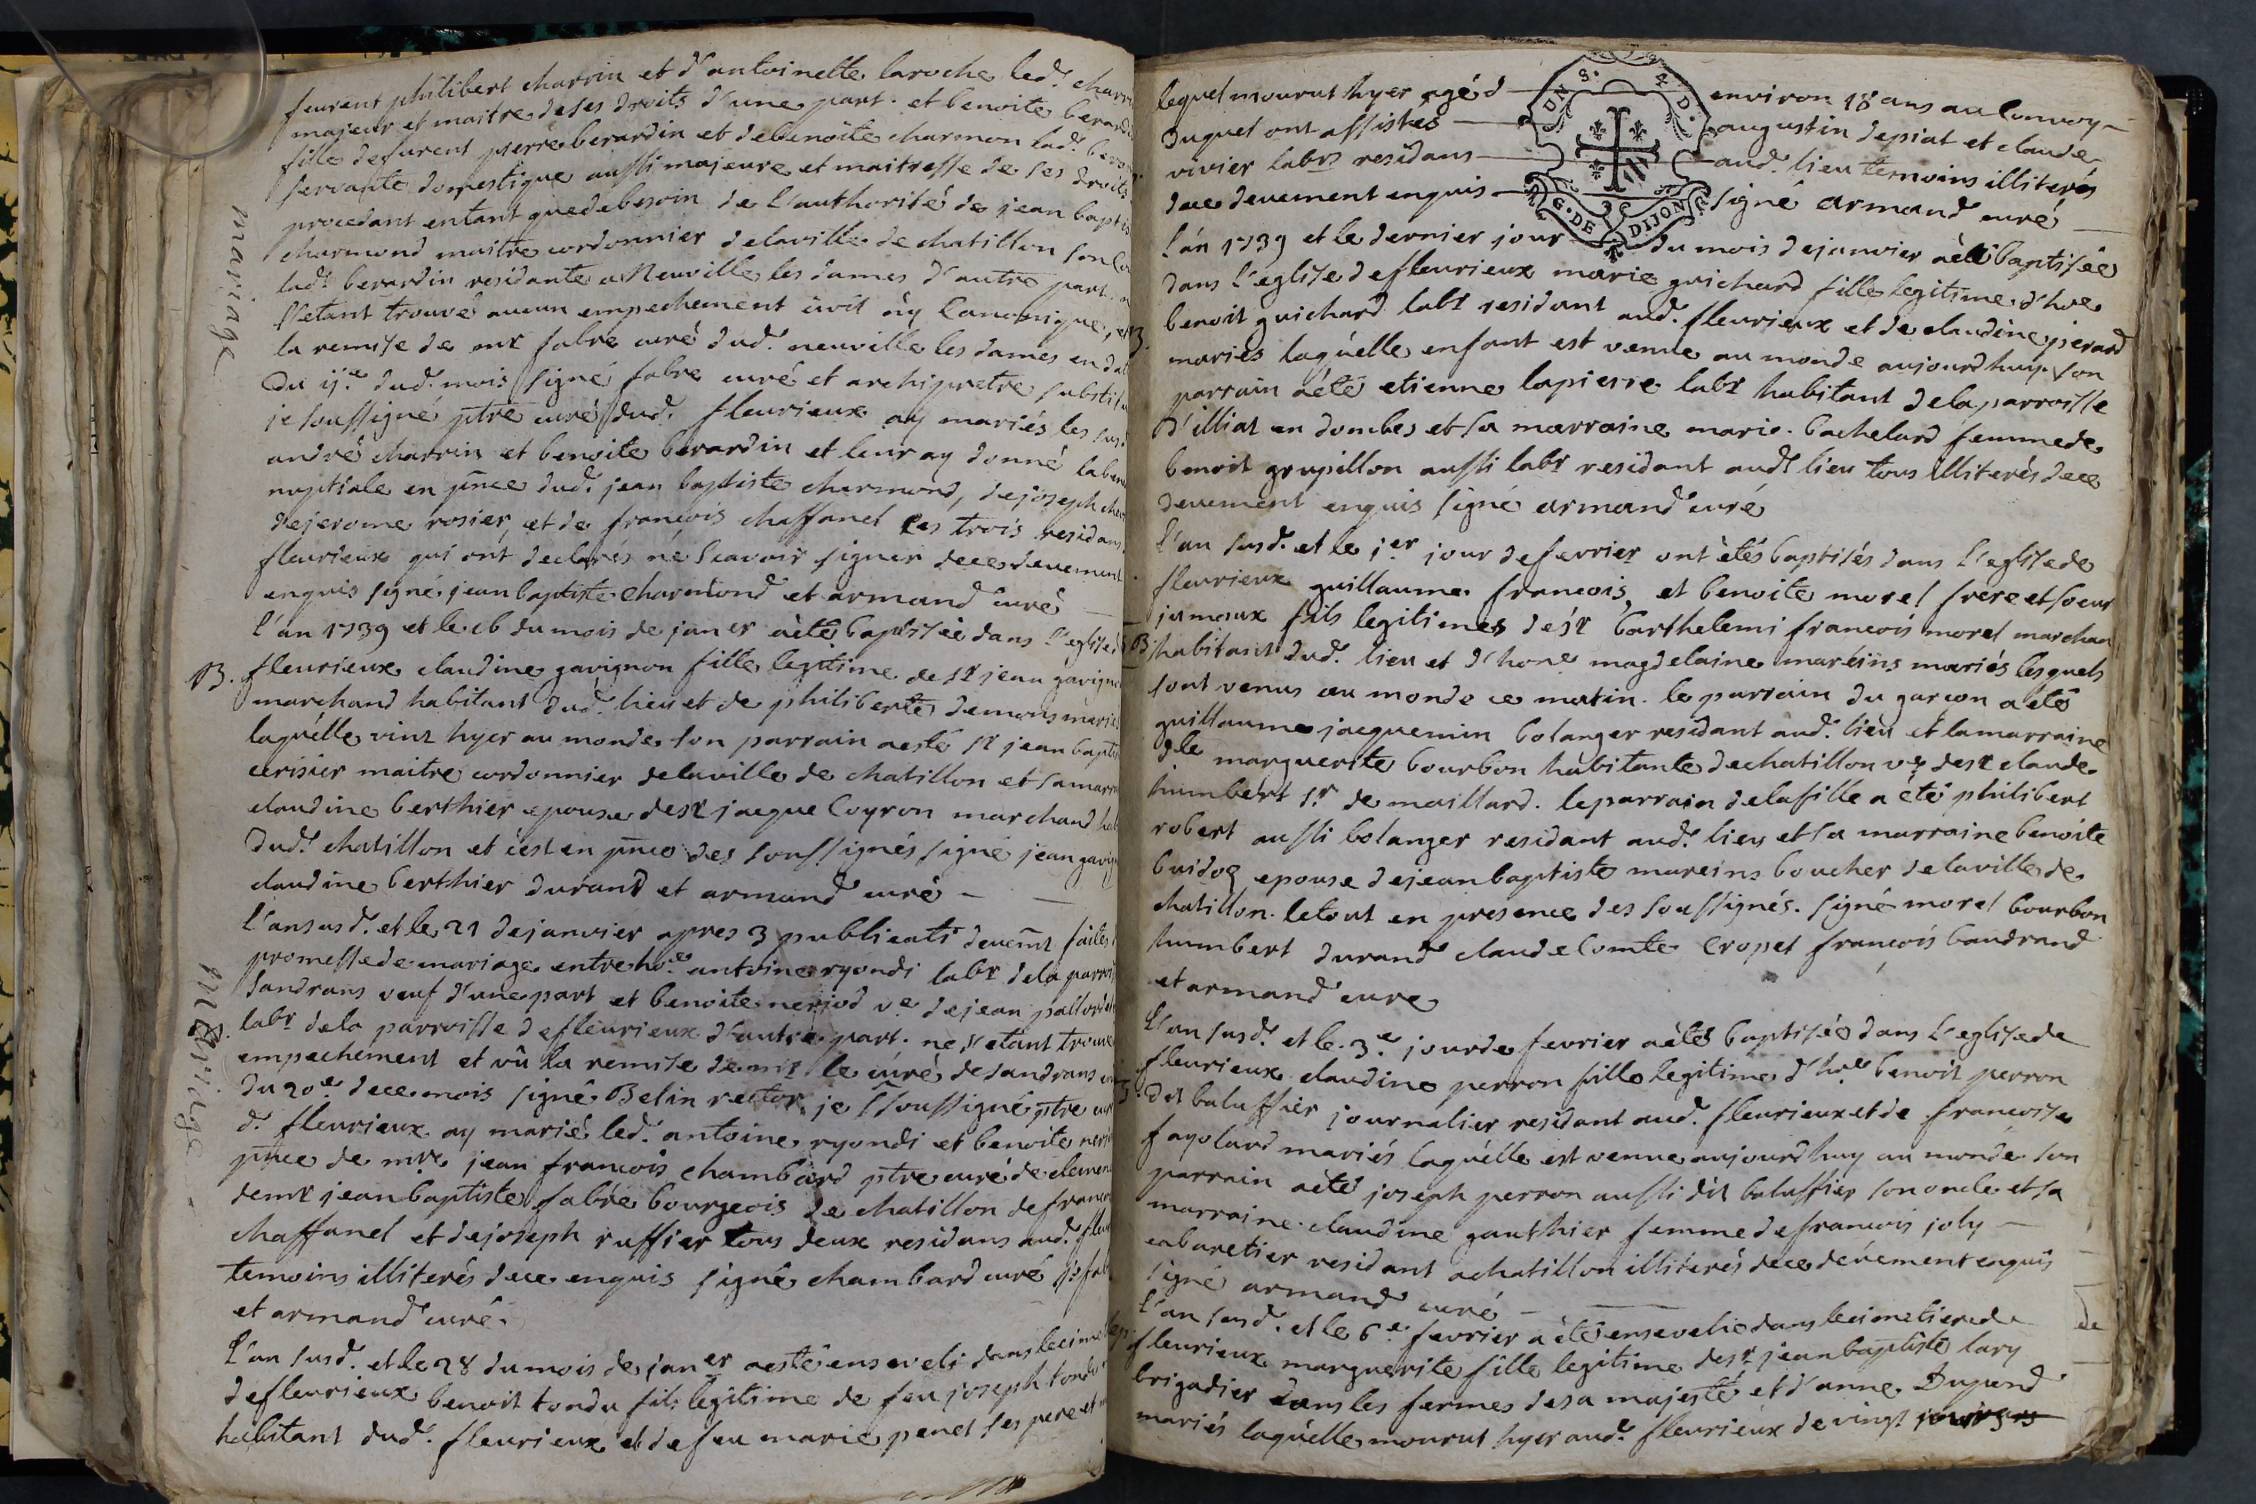 feurent philibert charvin et d'antoinette laroche led.
majeur et maitre de ses droits d'une part. et benoite
fille de furent pierre berardin et de benoite charmon lad.
servante domestique aussi majeure et maitresse de ses droits
procedant entant que de besoin de l'authorité de jean
charmond maitre cordonnier de la ville de chatillon son
lad.e berardin residante a Neuville les dames d'autre part
s'etant trouvé aucun empechement civil ny Canonique,
la remise de mr fabre curé dud. neuville les dames en
du ij.e dud. mois signé fabre curé et archipretre
je soussigné ptre curé dud. fleurieux ay mariés les
andré charvin et benoite berardin et leur ay donné la
nuptiale en pnce dud. jean baptiste charmond, de joseph
de jerome rosier, et de francois chaffanel les trois
fleurieux qui ont declarés né scavoir signer dece deuement
enquis signé jean baptiste charmond et armand curé
mariage
l'an 1739 et le 16 du mois de janer aèté baptisée dans l'eglise
B. fleurieux claudine gavignon fille legitime de sr jean
marchand habitant dud. lieu et de philiberte demons
laquelle vint hyer au monde son parrain aesté sr jean
cerisier maitre cordonnier de la ville de chatillon et sa
claudine berthier epouse de sr jacque Coyron marchand
dud.t chatillon et c'est en pnce des soussignés signé jean
claudine berthier durand et armand curé
l'an susd. et le 21 de janvier apres 3 publicati deuemt faites
promesse de mariage entre ho.e antoine ryondi labr de la
sandrans veuf d'une part et benoite neriod v.e de jean
labr de la parroisse de fleurieux d'autre part. ne s'etant
empechement et vû la remise de mr le curé de sandrans
du 20.e dece mois signé Belin rector. je soussigné ptre
d. fleurieux ay marié led. antoine ryondi et benoite
pnce de mre jean francois chambard ptre curé de
de mr jean baptiste fabre bourgeois de chatillon de
chaffanel et de joseph ruffier tous deux residans aud.
temoins illiterés dece enquis signé chambard curé
et armand curé.
mariage
l'an susd. et le 28 du mois de janer aesté enseveli dans
de fleurieux benoit tondu fils legitime de feu joseph
habitant dud. fleurieux et de feu marie penet ses pere et
lequel mourut hyer agé d environ 18 ans au Convoy
duquel ont assistés augustin depiat et claude
vivier labrs residans aud. lieu temoins illiterés
dece deuement enquis signé armand curé
G. DE DIJON
l'an 1739 et le dernier jour du mois de janvier aèté baptisée
dans l'eglise de fleurieux marie guichard fille legitime d'hoe
B. benoit guichard labr residant aud. fleurieux et de claudine pirard
mariés laquelle enfant est venue au monde aujourdhuy son
parrain aété etienne lapierre labr habitant de la parroisse
d'illiat en dombes et sa marraine marie bachelard femme de
benoit grupillon aussi labr residant aud.t lieu tous illiterés dece
deuement enquis signé armand curé
l'an susd. et le j.er jour de fevrier ont étés baptisés dans l'eglise de
fleurieux guillaume francois, et benoite morel frere et soeur
jumeaux fils legitimes de sr barthelemi francois morel marchan
B habitant dud. lieu et d'hone magdelaine mareins mariés lesquels
sont venus au monde ce matin. le parrain du garcon a eté
guillaume jacquemin bolanger residant aud. lieu et la marraine
dle marguerite bourbon habitante de chatillon ve de sr claude
humbert sr de maillard. le parrain de la fille a été philibert
robert aussi bolanger residant aud. lieu et sa marraine benoite
epouse de jean baptiste mareins boucher de la ville de
chatillon. le tout en presence des soussignés. signé morel bourbon
humbert durand claude Comte cropet francois baudrand
et armand curé
l'an susd. et le 3.e jour de fevrier aété baptisée dans l'eglise de
fleurieux claudine perron fille legitime d'ho.e benoit perron
dit baluffier journalier residant aud. fleurieux et de francoise
fayolard mariés laquélle est venue aujourdhuy au monde son
parrain aété joseph perron aussi dit baluffier son oncle et sa
marraine claudine gauthier femme de francois joly
cabaretier residant a chatillon illiterés dece deuement enquis
signé armand curé
l'an susd. et le 6.e fevrier a été ensevelie dans le cimetiere de
fleurieux marguerite fille legitime de sr jean baptiste lary
brigadier dans les fermes de sa majesté et d'anne Dupend
mariés laquélle mourut hyer aud. fleurieux de vingt